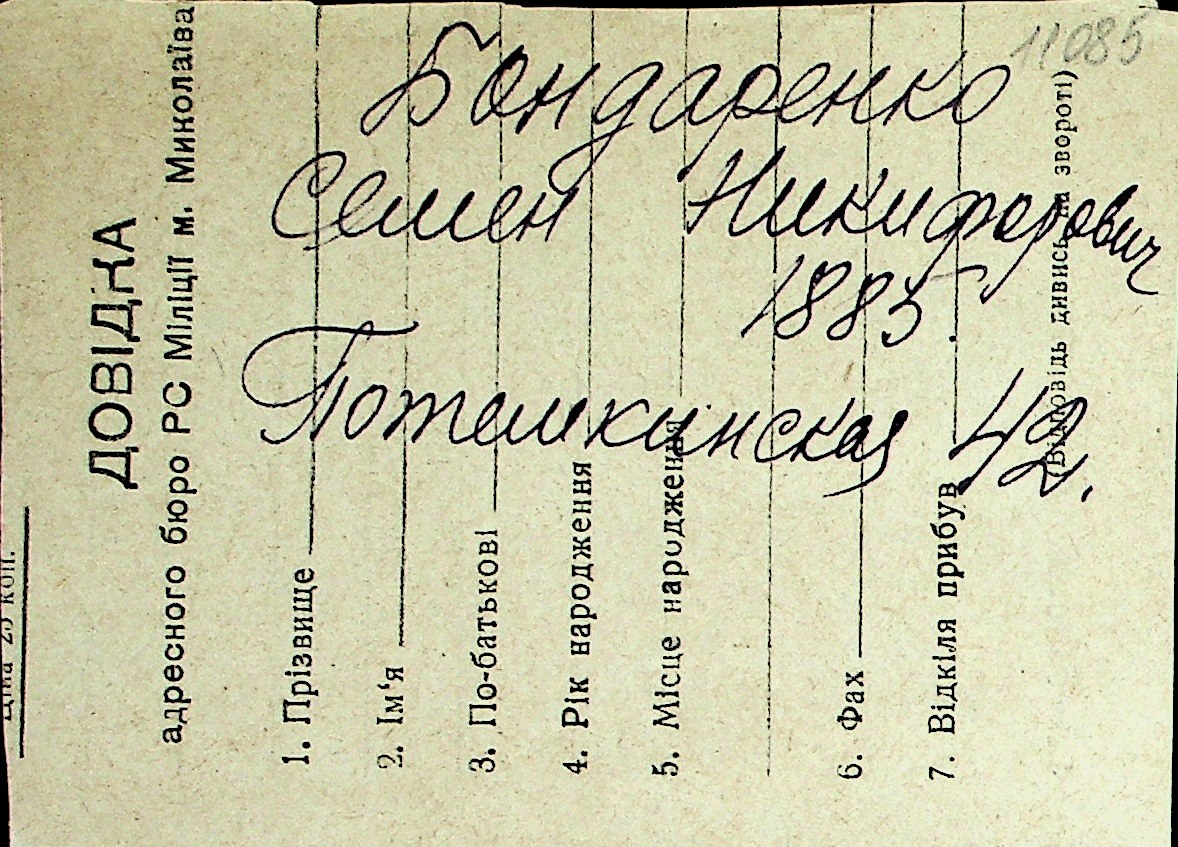 11085
Бондаренко
Семен Никифорович
1885.
Потемкинская 42.
Ціна 25 коп.
ДОВІДКА
адресного бюро РС Міліції м. Миколаїва
1. Прізвище
2. Ім'я
3. По-батькові
4. Рік народження
5. Місце народження
6. Фах
7. Відкіля прибув
(Відповідь дивись на звороті)